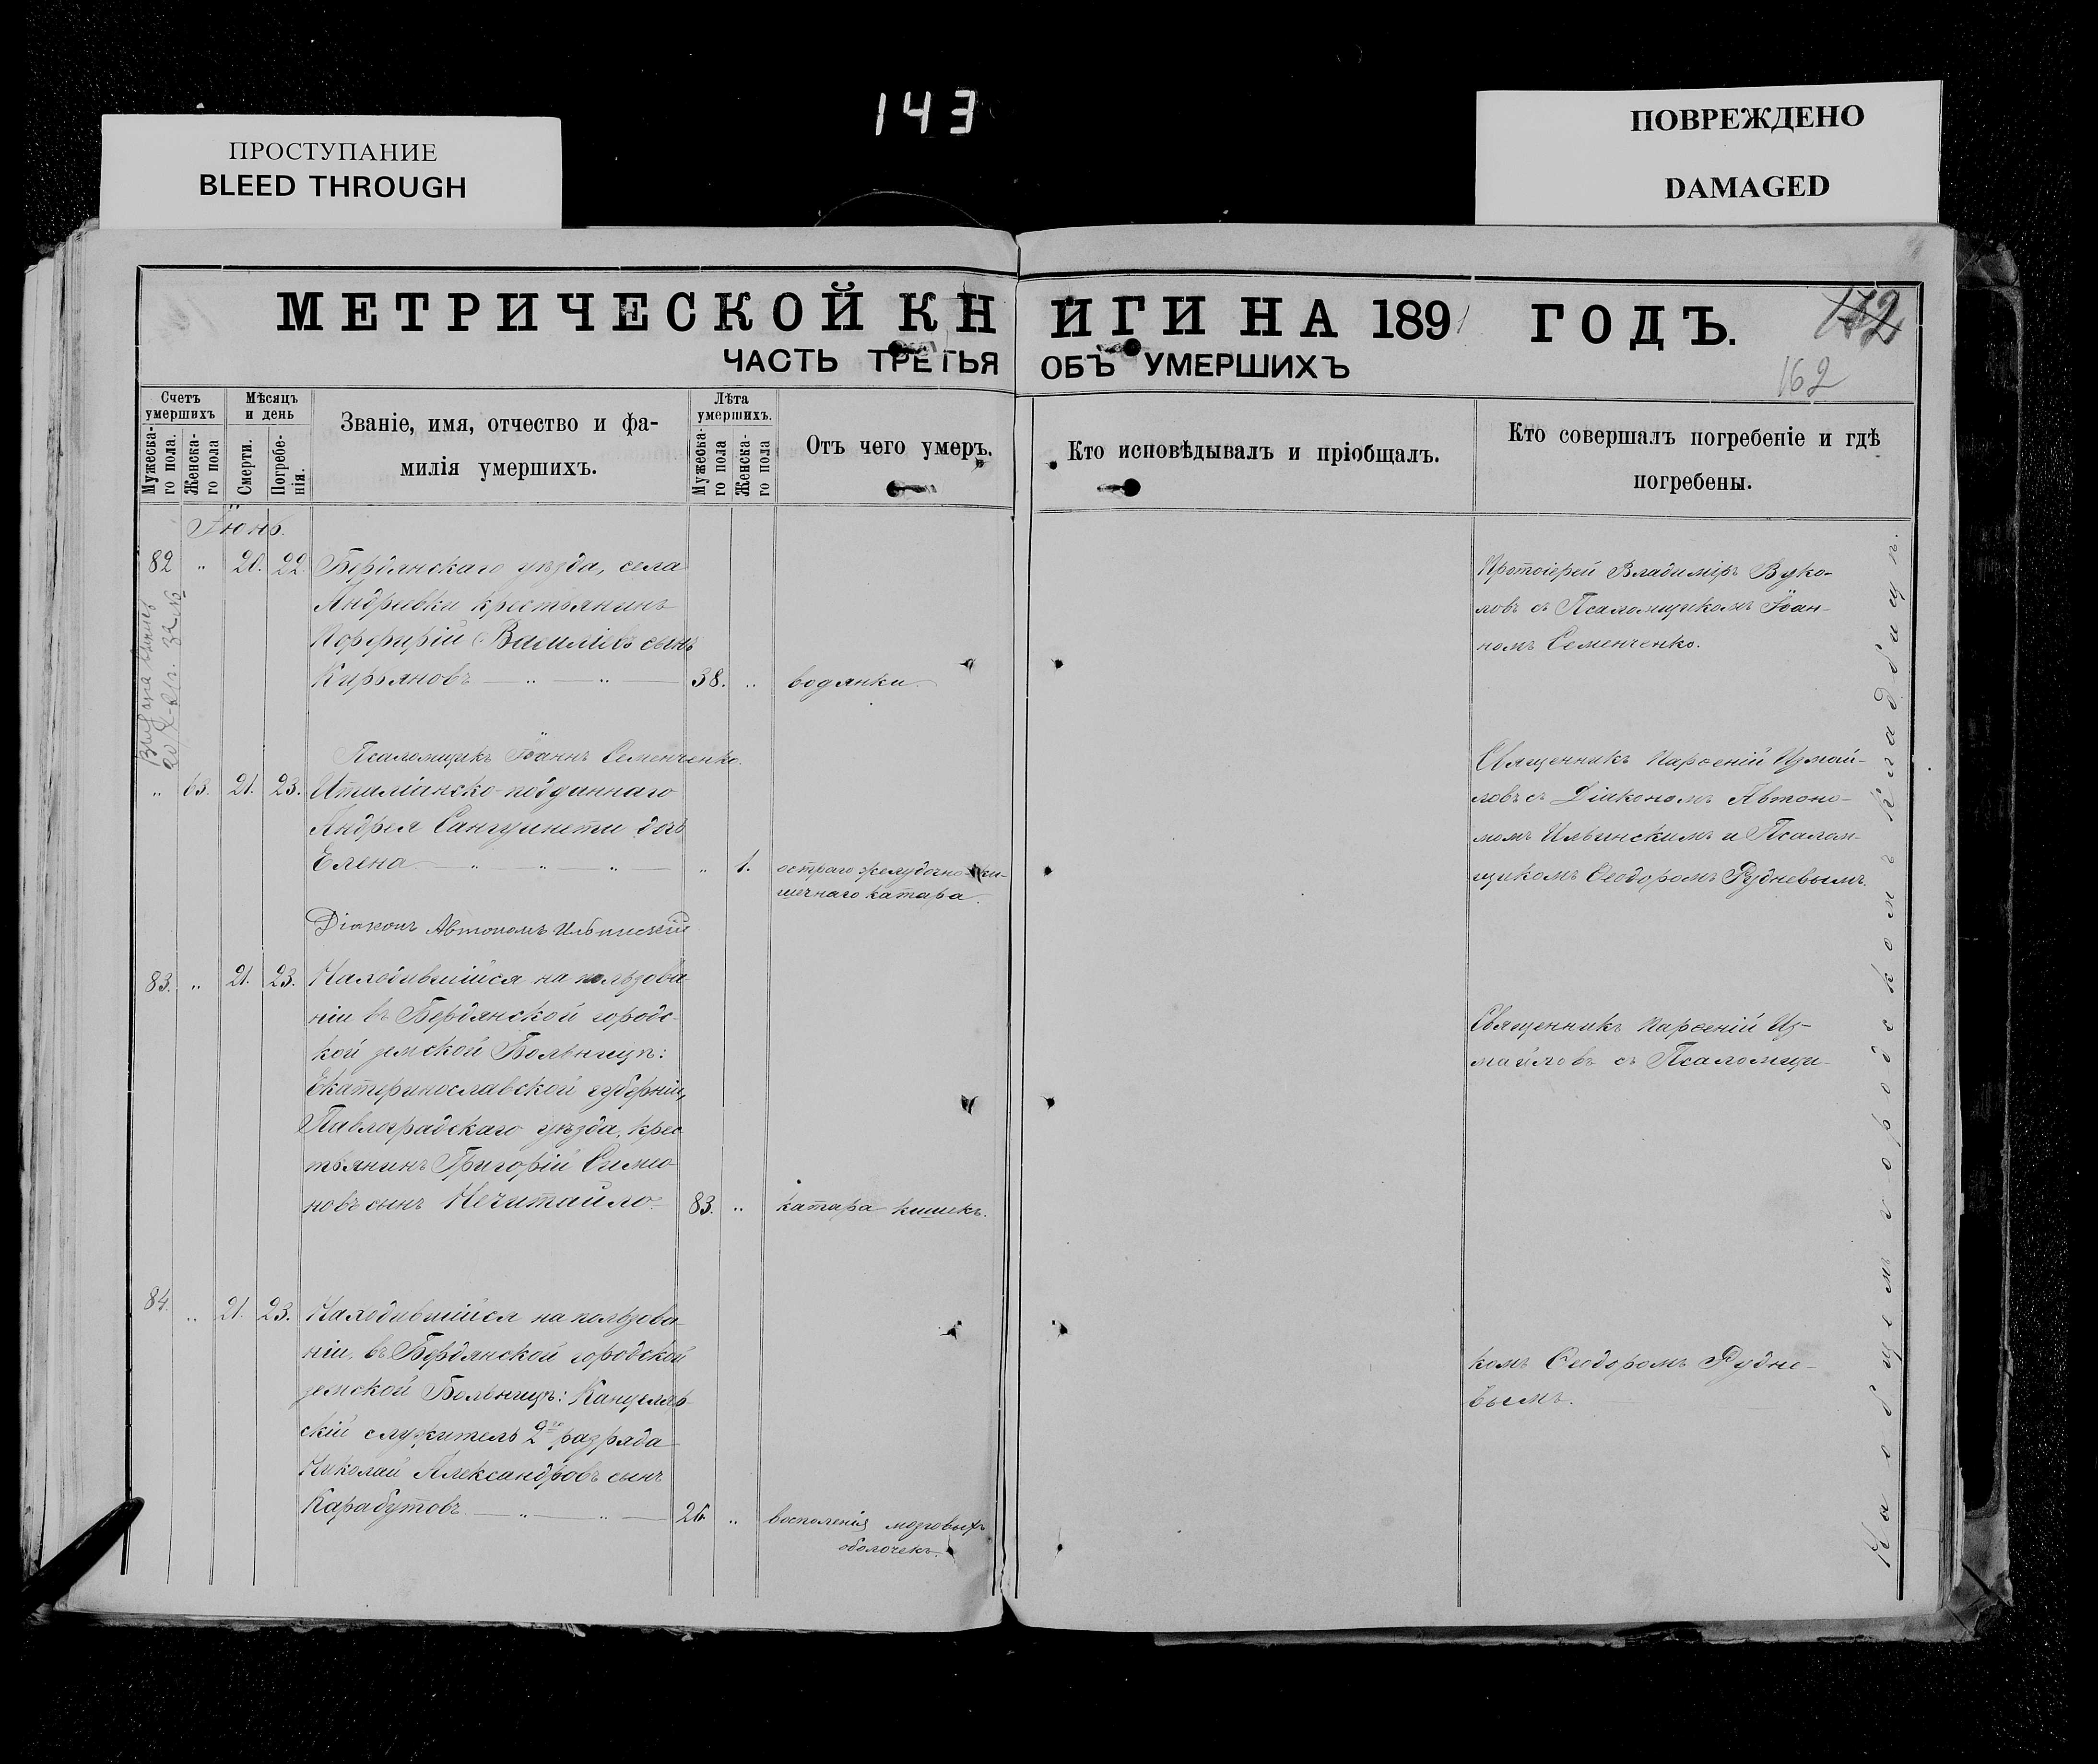 143
ПРОСТУПАНИЕ
BLEED THROUGH
ПОВРЕЖДЕНО
DAMAGED
МЕТРИЧЕСКОЙ КНИГИ НА 1891 ГОДЪ.
142
162
ЧАСТЬ ТРЕТЬЯ ОБЪ УМЕРШИХЪ
Счетъ умершихъ
Мужеска-го пола.
Женска-го пола
Мѣсяцъ и день
Смерти.
Погребе-нія.
Званіе, имя, отчество и фа-
милія умершихъ.
Лѣта умершихъ.
Мужеска-го пола
Женска-го пола
Отъ чего умеръ.
Кто исповѣдывалъ и пріобщалъ.
Кто совершалъ погребеніе и гдѣ
погребены.
Іюнь.
82 „ 20. 22. Бердянскаго уѣзда, села
Андреевки крестьянинъ
Порфирій Василіевъ сынъ
Кирьяновъ — „ — „ — 38. „ водянки
Протоіерей Владиміръ Вуко-
ловъ съ Псаломщикомъ Іоан-
номъ Семенченко.
Псаломщикъ Іоаннъ Семенченко.
„ 63. 21. 23. Италіянско-подданнаго
Андрея Сангуинети дочь
Елена — „ — „ — „ — „ 1. остраго желудочно-ки-
шечнаго катара.
Священникъ Парѳеній Измай-
ловъ съ Діакономъ Автоно-
момъ Ильинскимъ и Псалом-
щикомъ Ѳеодоромъ Рудневымъ.
Діаконъ Автономъ Ильинскій
83. „ 21. 23. Находившійся на пользова-
ніи въ Бердянской городс-
кой земской Больницѣ:
Екатеринославской губерніи,
Павлоградскаго уѣзда, крес-
тьянинъ Григорій Симео-
новъ сынъ Нечитайло. 83. „ катара кишекъ.
Священникъ Парѳеній Из-
майловъ съ Псаломщи-
84. „ 21. 23. Находившійся на пользова-
ніи въ Бердянской городской
земской Больницѣ: Канцеляр-
скій служитель 2го разряда
Николай Александровъ сынъ
Карабутовъ — „ — „ — 26 „ воспаленія мозговыхъ
оболочекъ.
комъ Ѳеодоромъ Рудне-
вымъ.
На общемъ городскомъ кладбищѣ.